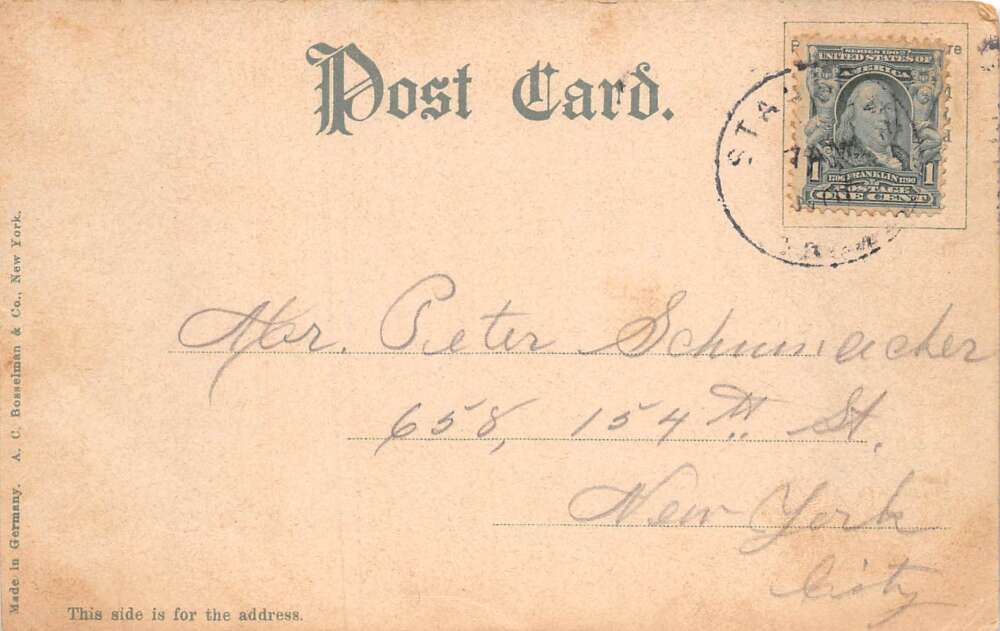 Post Card.
SERIES 1902
UNITED STATES OF
AMERICA
1 1706 FRANKLIN 1790 1
POSTAGE
ONE CENT
STA
Mr. Peter Schumacher
658, 154th St.
New York
City
Made in Germany. A. C. Bosselman & Co., New York.
This side is for the address.